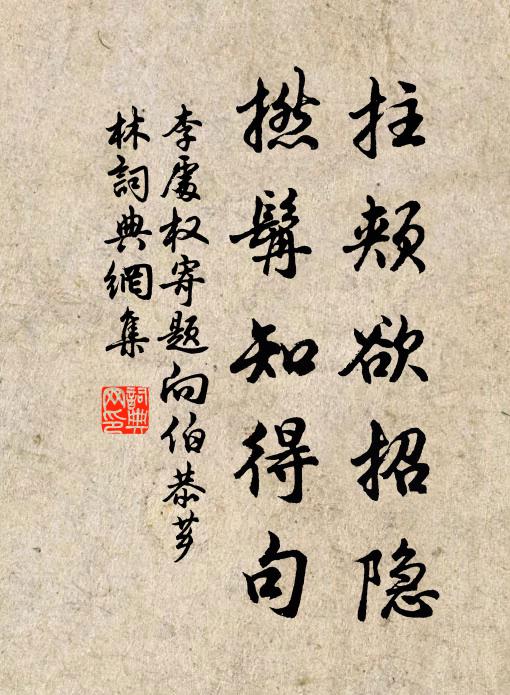 拄颊欲招隐
撚髯知得句
李處权寄题向伯恭芗
林詞典網集
詞典
网印